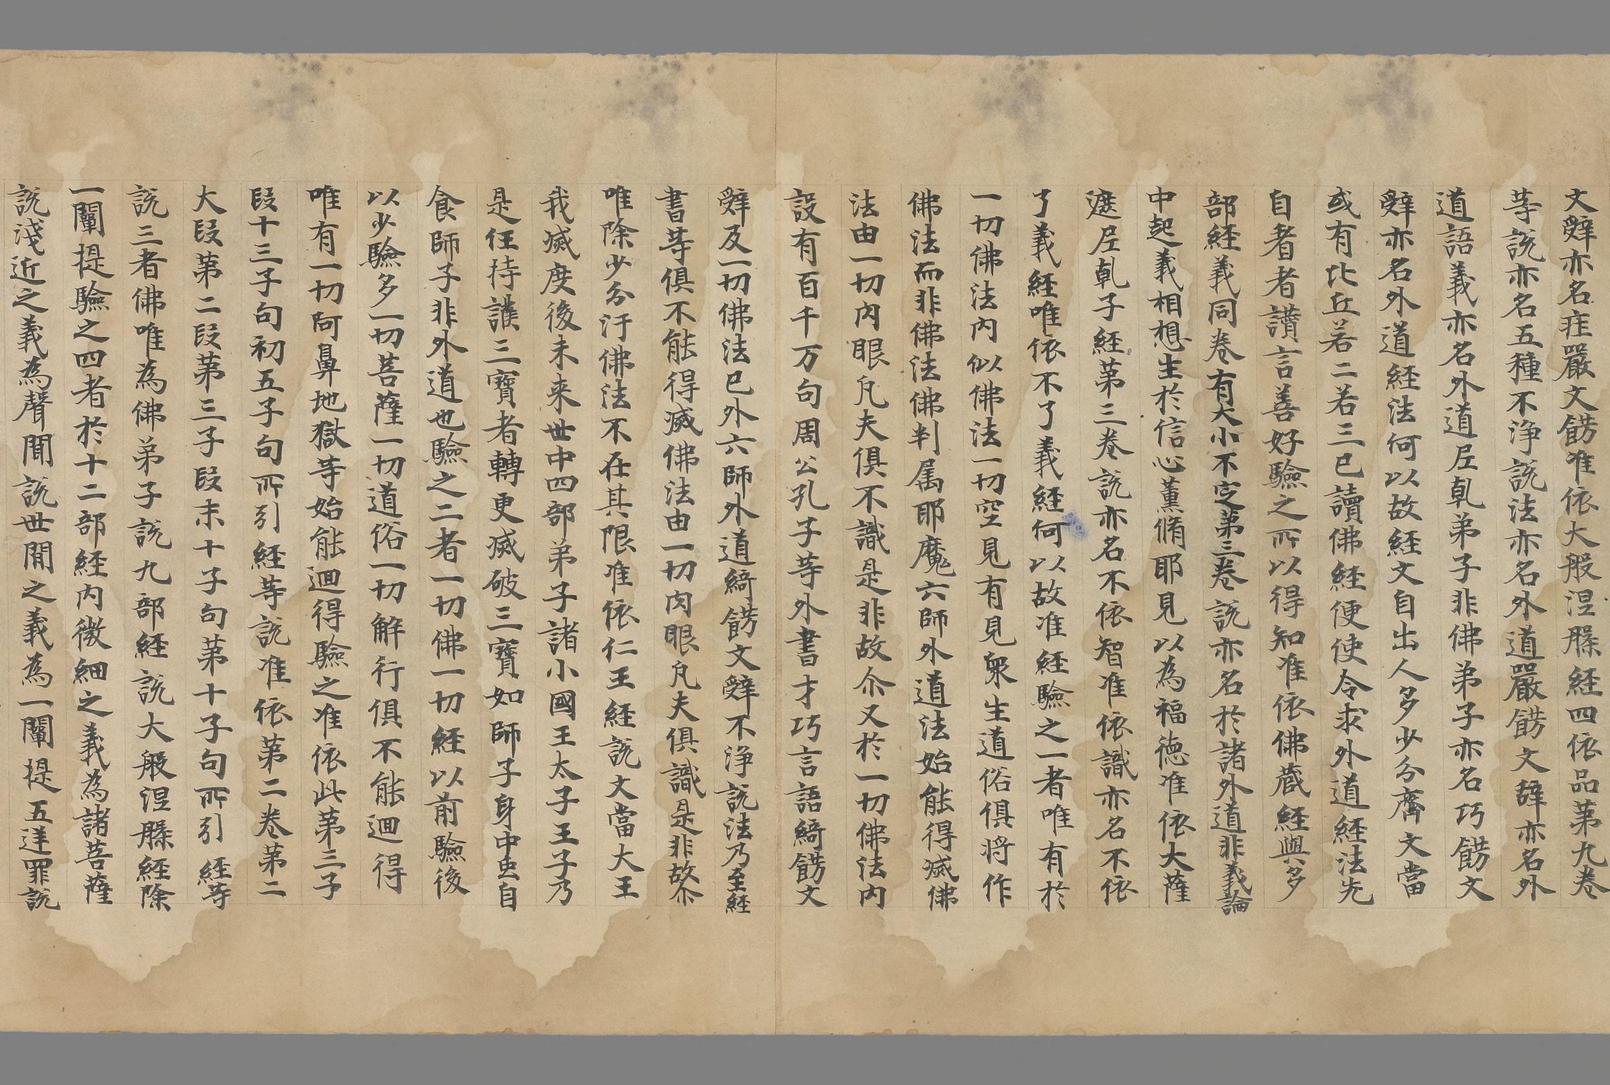 文辞亦名症嚴文餝准依大般涅槃経四依品第九卷
等說亦名五種不淨說法亦名外道嚴餝文辞亦名外
道語義亦名外道尼乹弟子非佛弟子亦名巧餝文
辞亦名外道経法何以故経文自出人多少分齊文當
或有比丘若二若三已讀佛経便使令求外道経法先
自者者讃言善好驗之所以得知准依佛蔵経與多
部経義同卷有大小不定第三卷說亦名於諸外道非義論
中起義相想生於信心薫脩耶見以為福徳准依大薩
遮尼乹子経第三卷說亦名不依智准依識亦名不依
了義経唯依不了義経何以故准経驗之一者唯有於
一切佛法内似佛法一切空見有見衆生道俗俱將作
佛法而非佛法佛判属耶魔六師外道法始能得滅佛
法由一切肉眼凡夫俱不識是非故尒又於一切佛法内
設有百千万句周公孔子等外書才巧言語綺餝文
辞及一切佛法已外六師外道綺餝文辞不淨說法乃至経
書等俱不能得滅佛法由一切肉眼凡夫俱識是非故尒
唯除少分汙佛法不在其限准依仁王経說文當大王
我滅度後未来世中四部弟子諸小國王太子王子乃
是任持護三寶者轉更滅破三寶如師子身中虫自
食師子非外道也驗之二者一切佛一切経以前驗後
以少驗多一切菩薩一切道俗一切解行俱不能迴得
唯有一切阿鼻地獄等始能迴得驗之准依此第三子
段十三子句初五子句所引経等說准依第二卷第二
大段第二段第三子段末十子句第十子句所引経等
說三者佛唯為佛弟子說九部経說大般涅槃経除
一闡提驗之四者於十二部経内微細之義為諸菩薩
說淺近之義為聲聞說世間之義為一闡提五逆罪說